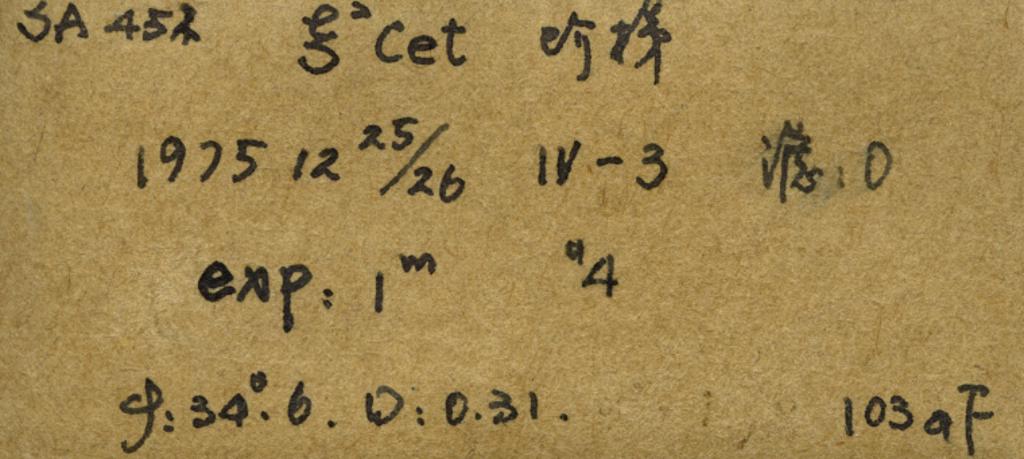 SA 452 ξ² Cet 阶梯
1975 12 25/26 IV-3 滤:0
exp: 1ᵐ "4
φ: 34°.6. D: 0.31.
103aF